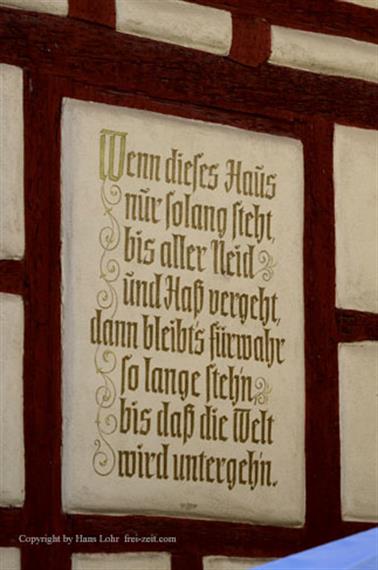 Wenn dieses Haus
nur solang steht,
bis aller Neid
und Haß vergeht,
dann bleibt's fürwahr
so lange steh'n,
bis daß die Welt
wird untergeh'n.
Copyright by Hans Lohr frei-zeit.com